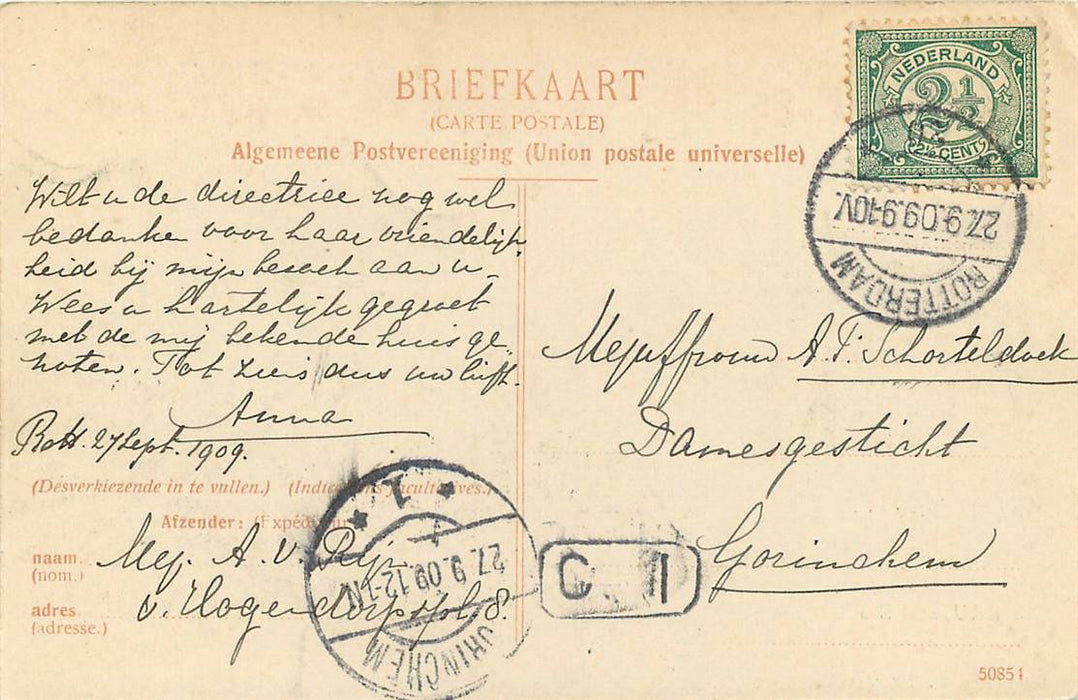 BRIEFKAART
(CARTE POSTALE)
Algemeene Postvereeniging (Union postale universelle)
NEDERLAND
2½
2½ CENT
27.9.09.9-10V.
ROTTERDAM
Wilt u de directrice nog wel
bedanken voor haar vriendelijk
heid bij mijn bezoek aan u.
Wees u hartelijk gegroet
met de mij bekende huisge
noten. Tot ziens dus uw liefh.
Anna
Rott. 27 Sept. 1909.
Mejuffrouw A.F. Schorteldoek
Damesgesticht
Gorinchem
(Desverkiezende in te vullen.) (Indications facultatives.)
Afzender: (Expéditeur
naam
(nom.)
Mej. A. v. Rijn
adres
(adresse.)
v. Hogendorpspl. 8.
1
27.9.09.12-1N
ORINCHEM
C I
50854